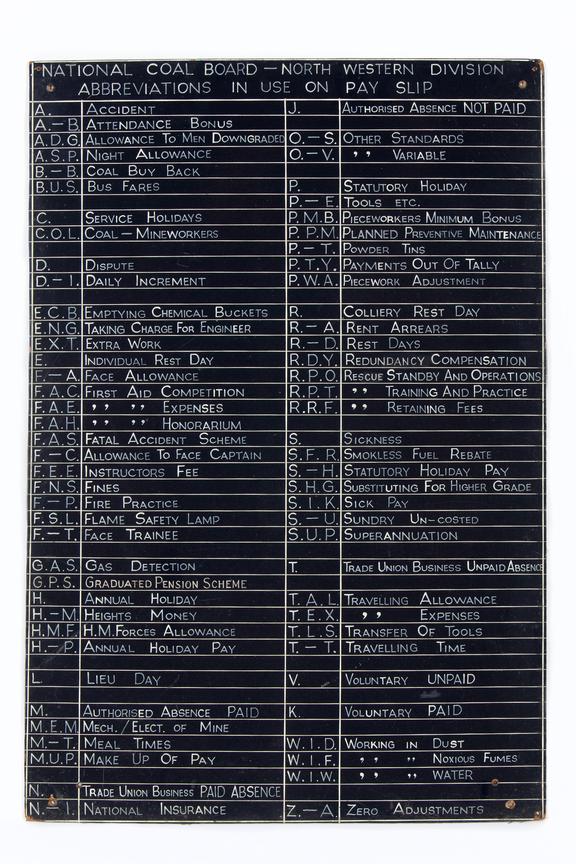 NATIONAL COAL BOARD — NORTH WESTERN DIVISION
ABBREVIATIONS IN USE ON PAY SLIP
A. ACCIDENT
A.—B. ATTENDANCE BONUS
A.D.G. ALLOWANCE TO MEN DOWNGRADED
A.S.P. NIGHT ALLOWANCE
B.—B. COAL BUY BACK
B.U.S. BUS FARES
C. SERVICE HOLIDAYS
C.O.L. COAL — MINEWORKERS
D. DISPUTE
D.—I. DAILY INCREMENT
E.C.B. EMPTYING CHEMICAL BUCKETS
E.N.G. TAKING CHARGE FOR ENGINEER
E.X.T. EXTRA WORK
E. INDIVIDUAL REST DAY
F.—A. FACE ALLOWANCE
F.A.C. FIRST AID COMPETITION
F.A.E. ,, ,, EXPENSES
F.A.H. ,, ,, HONORARIUM
F.A.S. FATAL ACCIDENT SCHEME
F.—C. ALLOWANCE TO FACE CAPTAIN
F.E.E. INSTRUCTORS FEE
F.N.S. FINES
F.—P. FIRE PRACTICE
F.S.L. FLAME SAFETY LAMP
F.—T. FACE TRAINEE
G.A.S. GAS DETECTION
G.P.S. GRADUATED PENSION SCHEME
H. ANNUAL HOLIDAY
H.—M. HEIGHTS MONEY
H.M.F. H.M. FORCES ALLOWANCE
H.—P. ANNUAL HOLIDAY PAY
L. LIEU DAY
M. AUTHORISED ABSENCE PAID
M.E.M. MECH./ELECT. OF MINE
M.—T. MEAL TIMES
M.U.P. MAKE UP OF PAY
N. TRADE UNION BUSINESS PAID ABSENCE
N.—I. NATIONAL INSURANCE
J. AUTHORISED ABSENCE NOT PAID
O.—S. OTHER STANDARDS
O.—V. ,, VARIABLE
P. STATUTORY HOLIDAY
P.—E. TOOLS ETC.
P.M.B. PIECEWORKERS MINIMUM BONUS
P.P.M. PLANNED PREVENTIVE MAINTENANCE
P.—T. POWDER TINS
P.T.Y. PAYMENTS OUT OF TALLY
P.W.A. PIECEWORK ADJUSTMENT
R. COLLIERY REST DAY
R.—A. RENT ARREARS
R.—D. REST DAYS
R.D.Y. REDUNDANCY COMPENSATION
R.P.O. RESCUE STANDBY AND OPERATIONS
R.P.T. ,, TRAINING AND PRACTICE
R.R.F. ,, RETAINING FEES
S. SICKNESS
S.F.R. SMOKLESS FUEL REBATE
S.—H. STATUTORY HOLIDAY PAY
S.H.G. SUBSTITUTING FOR HIGHER GRADE
S.I.K. SICK PAY
S.—U. SUNDRY UN-COSTED
S.U.P. SUPERANNUATION
T. TRADE UNION BUSINESS UNPAID ABSENCE
T.A.L. TRAVELLING ALLOWANCE
T.E.X. ,, EXPENSES
T.L.S. TRANSFER OF TOOLS
T.—T. TRAVELLING TIME
V. VOLUNTARY UNPAID
K. VOLUNTARY PAID
W.I.D. WORKING IN DUST
W.I.F. ,, ,, NOXIOUS FUMES
W.I.W. ,, ,, WATER
Z.—A. ZERO ADJUSTMENTS